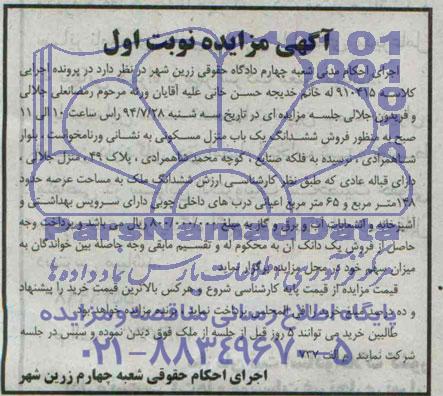 آگهی مزایده نوبت اول
اجرای احکام مدنی شعبه چهارم دادگاه حقوقی زرین شهر در نظر دارد در پرونده اجرایی
کلاسه ۹۱۰۴۱۵ له خانم خدیجه حسن خانی علیه آقایان ورثه مرحوم رمضانعلی جلالی
و فریدون جلالی جلسه مزایده ای در تاریخ سه شنبه ۹۴/۷/۲۸ راس ساعت ۱۰ الی ۱۱
صبح به منظور فروش ششدانگ یک باب منزل مسکونی به نشانی ورنامخواست، بلوار
شاهمرادی، نرسیده به فلکه صنایع، کوچه محمد شاهمرادی، پلاک ۴۹، منزل جلالی،
دارای قباله عادی که طبق نظر کارشناسی ارزش ششدانگ ملک به مساحت عرصه حدود
۱۴۸متر مربع و ۶۵ متر مربع اعیانی درب های داخلی چوبی دارای سرویس بهداشتی و
آشپزخانه و انشعابات آب و برق و گاز به مبلغ ریال می باشد و پرداخت وجه
حاصل از فروش یک دانگ آن به محکوم له و تقسیم مابقی وجه حاصله بین خواندگان به
میزان سهم خود در محل مزایده برگزار نماید.
قیمت مزایده از قیمت پایه کارشناسی شروع و هرکس بالاترین قیمت خرید را پیشنهاد
و ده درصد مبلغ خرید را فی المجلس پرداخت نماید برنده مزایده خواهد بود.
طالبین خرید می توانند ۵ روز قبل از جلسه از ملک فوق دیدن نموده و سپس در جلسه
شرکت نمایند. م الف ۷۳۷
اجرای احکام حقوقی شعبه چهارم زرین شهر
ParsNamadData
پایگاه اطلاع رسانی مناقصه و مزایده
۰۲۱-۸۸۳۴۹۶۷۰-۵